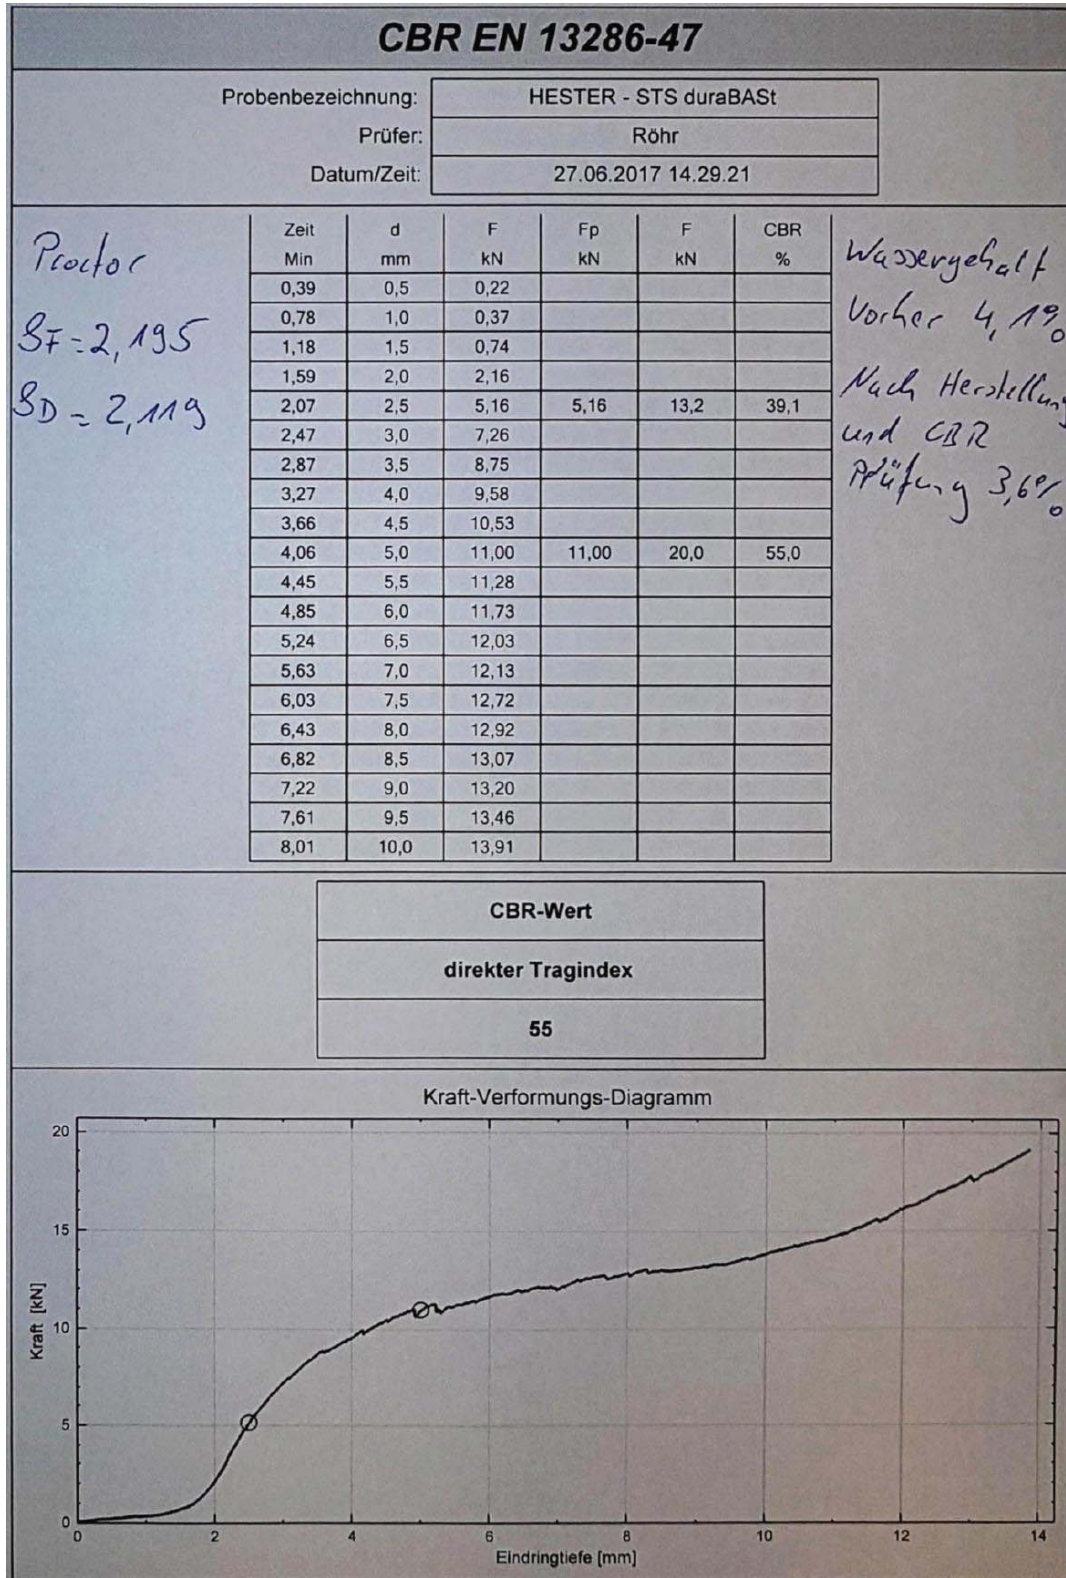 CBR EN 13286-47
Probenbezeichnung: HESTER - STS duraBASt
Prüfer: Röhr
Datum/Zeit: 27.06.2017 14.29.21
Proctor
ϱF = 2,195
ϱD = 2,119
Zeit d F Fp F CBR
Min mm kN kN kN %
0,39 0,5 0,22
0,78 1,0 0,37
1,18 1,5 0,74
1,59 2,0 2,16
2,07 2,5 5,16 5,16 13,2 39,1
2,47 3,0 7,26
2,87 3,5 8,75
3,27 4,0 9,58
3,66 4,5 10,53
4,06 5,0 11,00 11,00 20,0 55,0
4,45 5,5 11,28
4,85 6,0 11,73
5,24 6,5 12,03
5,63 7,0 12,13
6,03 7,5 12,72
6,43 8,0 12,92
6,82 8,5 13,07
7,22 9,0 13,20
7,61 9,5 13,46
8,01 10,0 13,91
Wassergehalt
Vorher 4,1%
Nach Herstellung
und CBR
Prüfung 3,6%
CBR-Wert
direkter Tragindex
55
Kraft-Verformungs-Diagramm
Kraft [kN]
20
15
10
5
0
0 2 4 6 8 10 12 14
Eindringtiefe [mm]